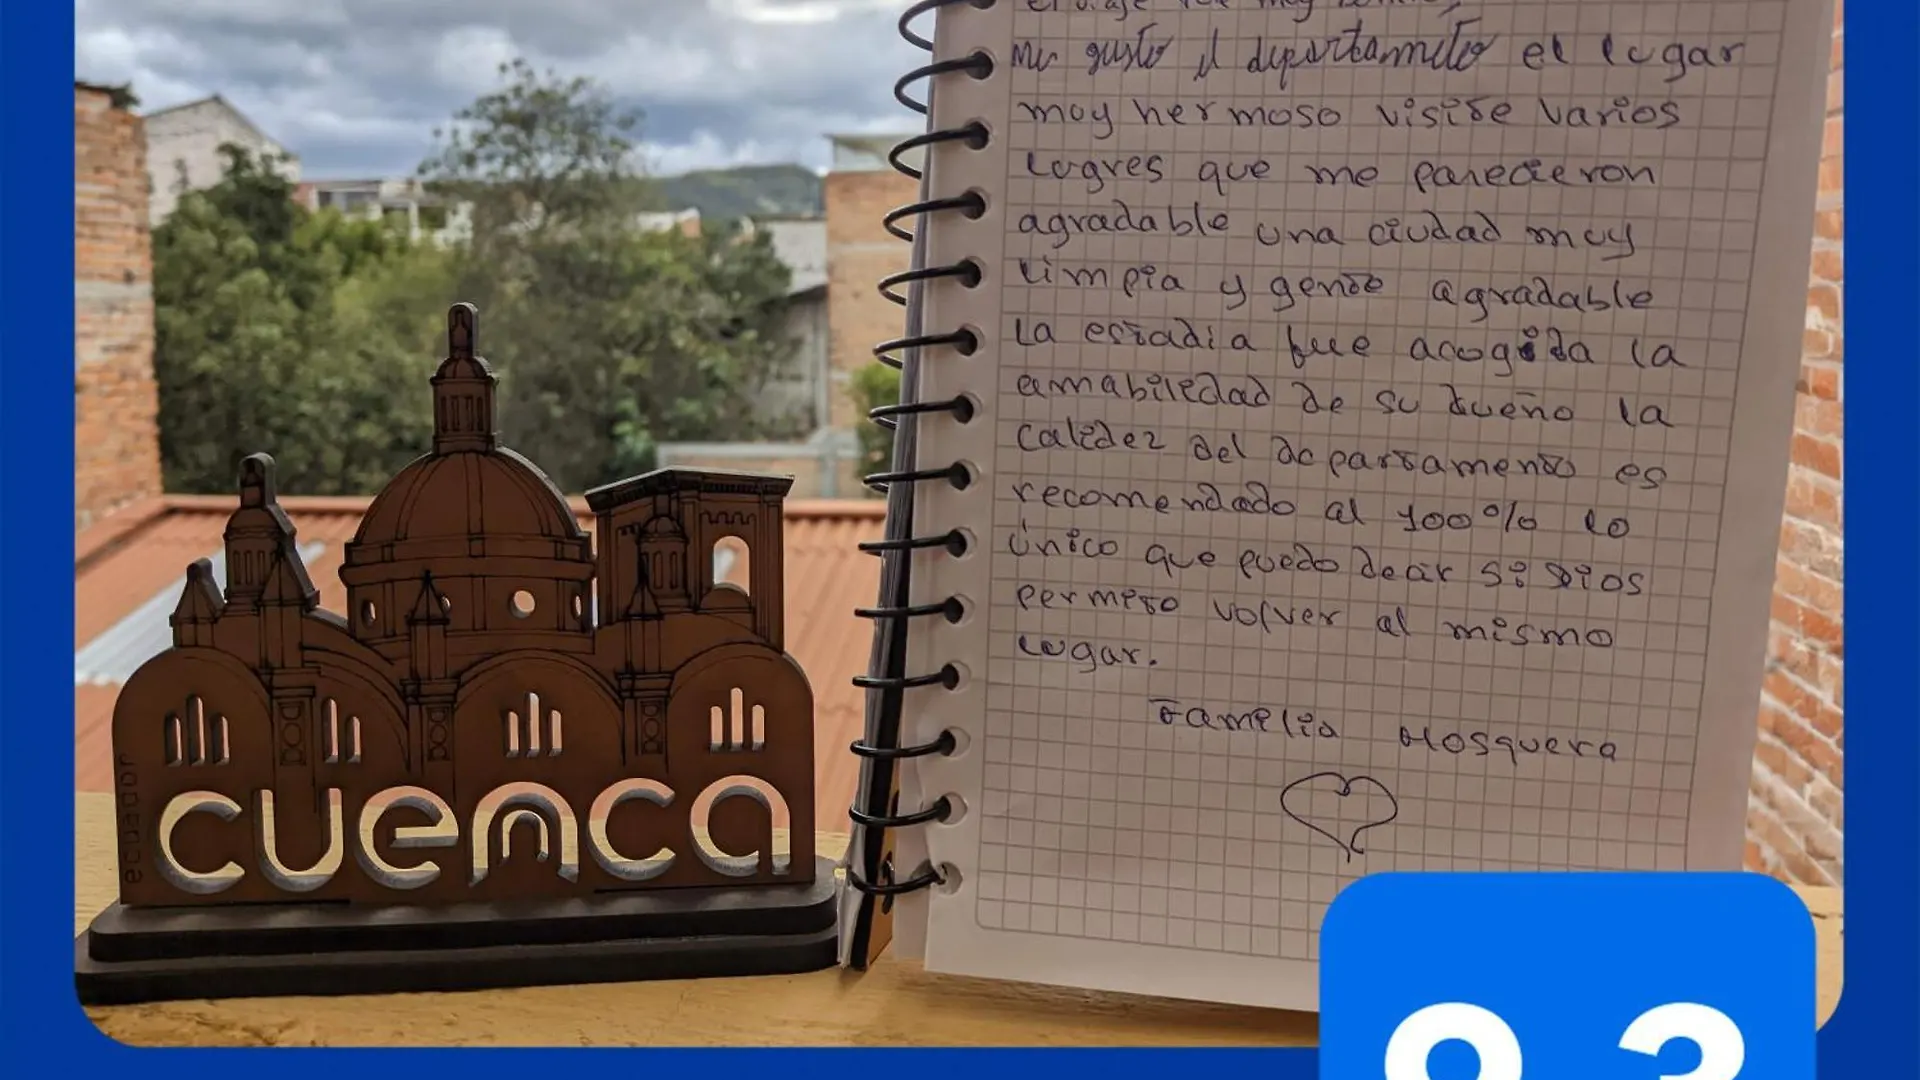 el viaje fue muy
Me gusto el departamento el lugar
muy hermoso visite varios
lugres que me parecieron
agradable una ciudad muy
limpia y gente agradable
la estadia fue acogida la
amabilidad de su dueño la
calidez del departamento es
recomendado al 100% lo
único que puedo decir si dios
permito volver al mismo
lugar.
Familia Mosquera
ecuador
cuenca
9.3